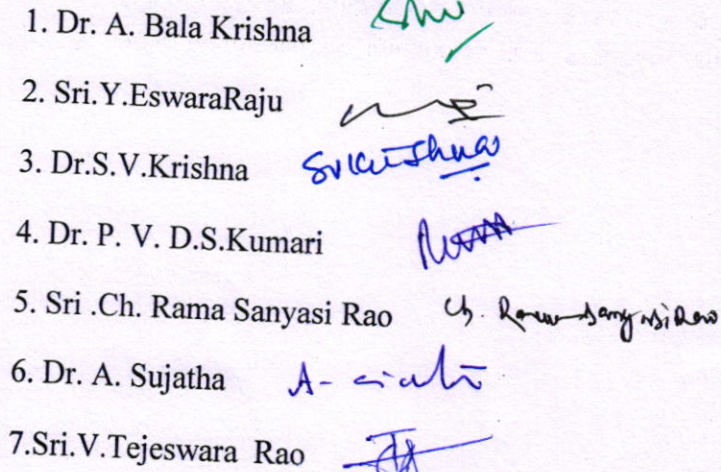 1. Dr. A. Bala Krishna
2. Sri.Y.EswaraRaju
3. Dr.S.V.Krishna Svkrishna
4. Dr. P. V. D.S.Kumari
5. Sri .Ch. Rama Sanyasi Rao Ch. Rama Sanyasi Rao
6. Dr. A. Sujatha A-
7.Sri.V.Tejeswara Rao